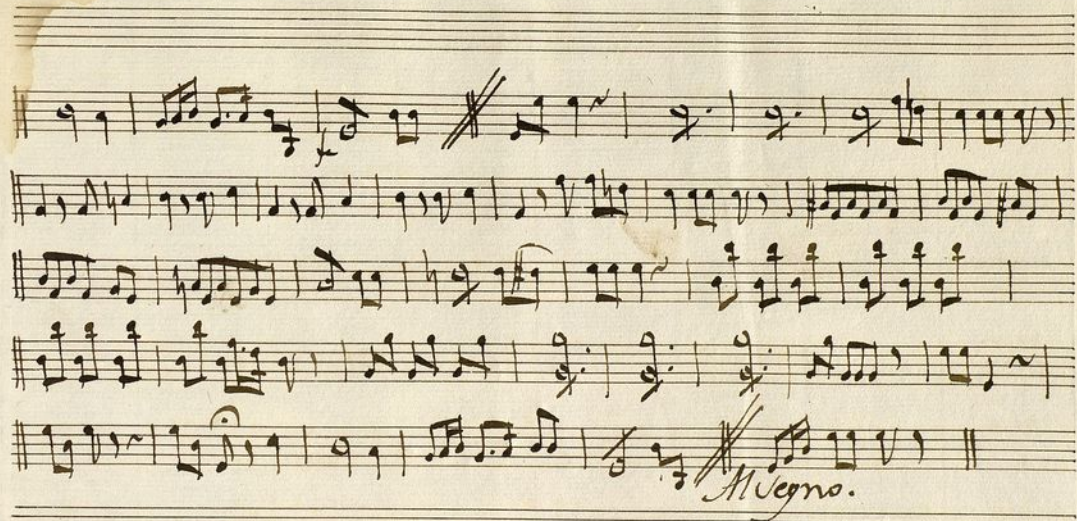 Al Segno.